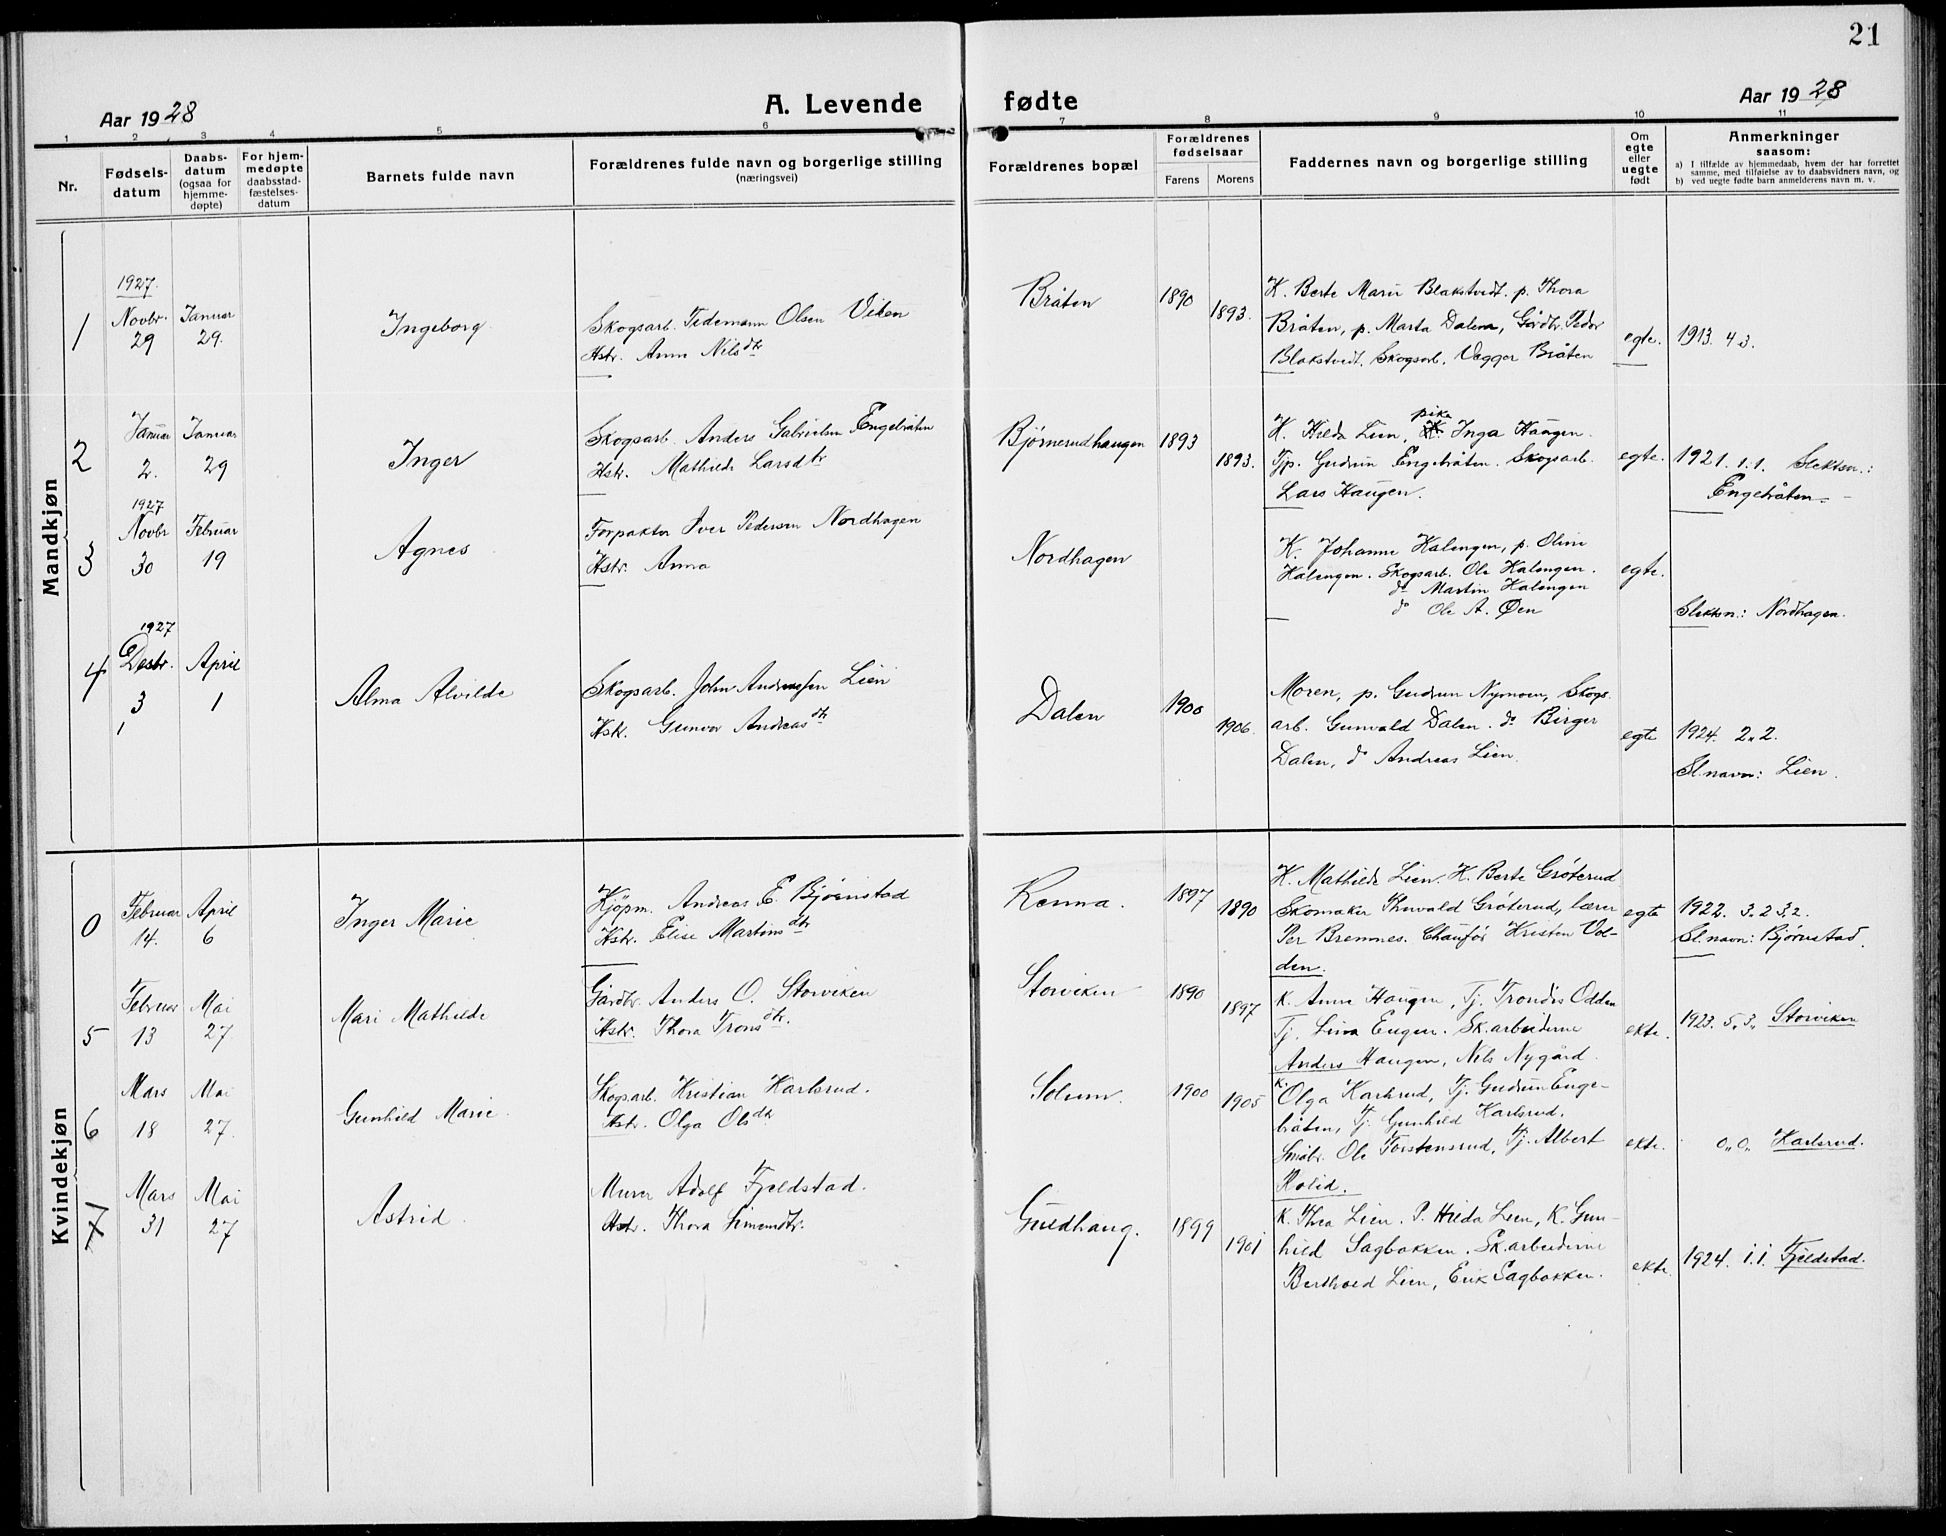 21
Aar 1928
A. Levende fødte
Aar 1928
1 2 3 4 5 6 7 8 9 10 11
Nr.
Fødsels-
datum
Daabs-
datum
(ogsaa for
hjemme-
døpte)
For hjem-
medøpte
daabsstad-
fæstelses-
datum
Barnets fulde navn
Forældrenes fulde navn og borgerlige stilling
(næringsvei)
Forældrenes bopæl
Forældrenes
fødselsaar
Farens
Morens
Faddernes navn og borgerlige stilling
Om
egte
eller
uegte
født
Anmerkninger
saasom:
a) I tilfælde av hjemmedaab, hvem der har forrettet
samme, med tilføielse av to daabsvidners navn, og
b) ved uegte fødte barn anmelderens navn m. v.
Mandkjøn
1
1927.
Novbr.
29
Januar
29.
Ingeborg
Skogsarb. Tidemann Olsen Viken
Hstr. Anne Nilsdtr
Bråten
1890
1893.
K. Berte Marie Blakstvedt. p. Thora
Bråten, p. Marta Dalen, Gårdbr. Peder
Blakstvedt. Skogsarb. Vegger Bråten
egte.
1913. 4 3.
2
Januar
2.
Januar
29
Inger
Skogsarb. Anders Gabrielsen Engebråten
Hstr. Mathilde Larsdtr
Bjørnerudhaugen
1893
1893.
pike
K. Hilda Lien, Inga Haugen.
Tjp. Gudrun Engebråten. Skogsarb.
Lars Haugen.
egte.
1921. 1.1. Slektsn.:
Engebråten.
3
1927
Novbr
30
Februar
19
Agnes
Forpakter Iver Pedersen Nordhagen
Hstr. Anna
Nordhagen
K. Johanne Halengen, p. Oline
Halengen. Skogsarb. Ole Halengen.
do Martin Halengen
do Ole A. Øen
egte.
Slektsn.: Nordhagen.
4
1927
Desbr.
3
April
1
Alma Alvilde
Skogsarb. John Andreassen Lien
Hstr. Gunvor Andreasdtr
Dalen
1900
1906.
Moren, p. Gudrun Nymoen, Skogs-
arb. Gunvald Dalen. do Birger
Dalen, do Andreas Lien.
egte
1924. 2. 2.
Sl.navn: Lien.
Kvindekjøn
0
Februar
14.
April
6
Inger Marie
Kjöpm. Andreas E. Bjørnstad
Hstr. Elise Martinsdtr
Renna.
1897
1890
K. Mathilde Lien. K. Berte Gróterud
Skomaker Thorvald Gróterud, lærer
Per Bremnes. Chauför Kristen Vol-
den.
egte
1922. 3. 2 3, 2.
Sl.navn: Bjørnstad.
5
Februar
13
Mai
27
Mari Mathilde
Gårdbr. Anders O. Storviken
Hstr. Thora Tronsdtr.
Storviken
1890
1897
K. Anne Haugen, Tj. Trondis Odden
Tj. Lina Eugen. Sk.arbeiderne
Anders Haugen, Nels Nygård.
ekte.
1923. 5, 3, Storviken
6
Mars
18
Mai
27.
Gunhild Marie.
Skogsarb. Kristian Karlsrud.
Hstr. Olga Olsdtr
Solum.
1900
1905
K. Olga Karlsrud, Tj. Gudrun Enge-
bråten, Tj. Gunhild Karlsrud.
Småbr. Ole Torstensrud, Tj. Albert
Rolid.
ekte.
0, 0, Karlsrud.
7
Mars
31
Mai
27
Astrid.
Murer Adolf Fjeldstad.
Hstr. Thora Simensdtr.
Guldhaug.
1899
1901
K. Thea Lien. P. Hilda Lien, K. Gun-
hild Sagbakken. Sk.arbeiderne
Berthold Lien, Erik Sagbakken.
ekte.
1924. 1.1. Fjeldstad.